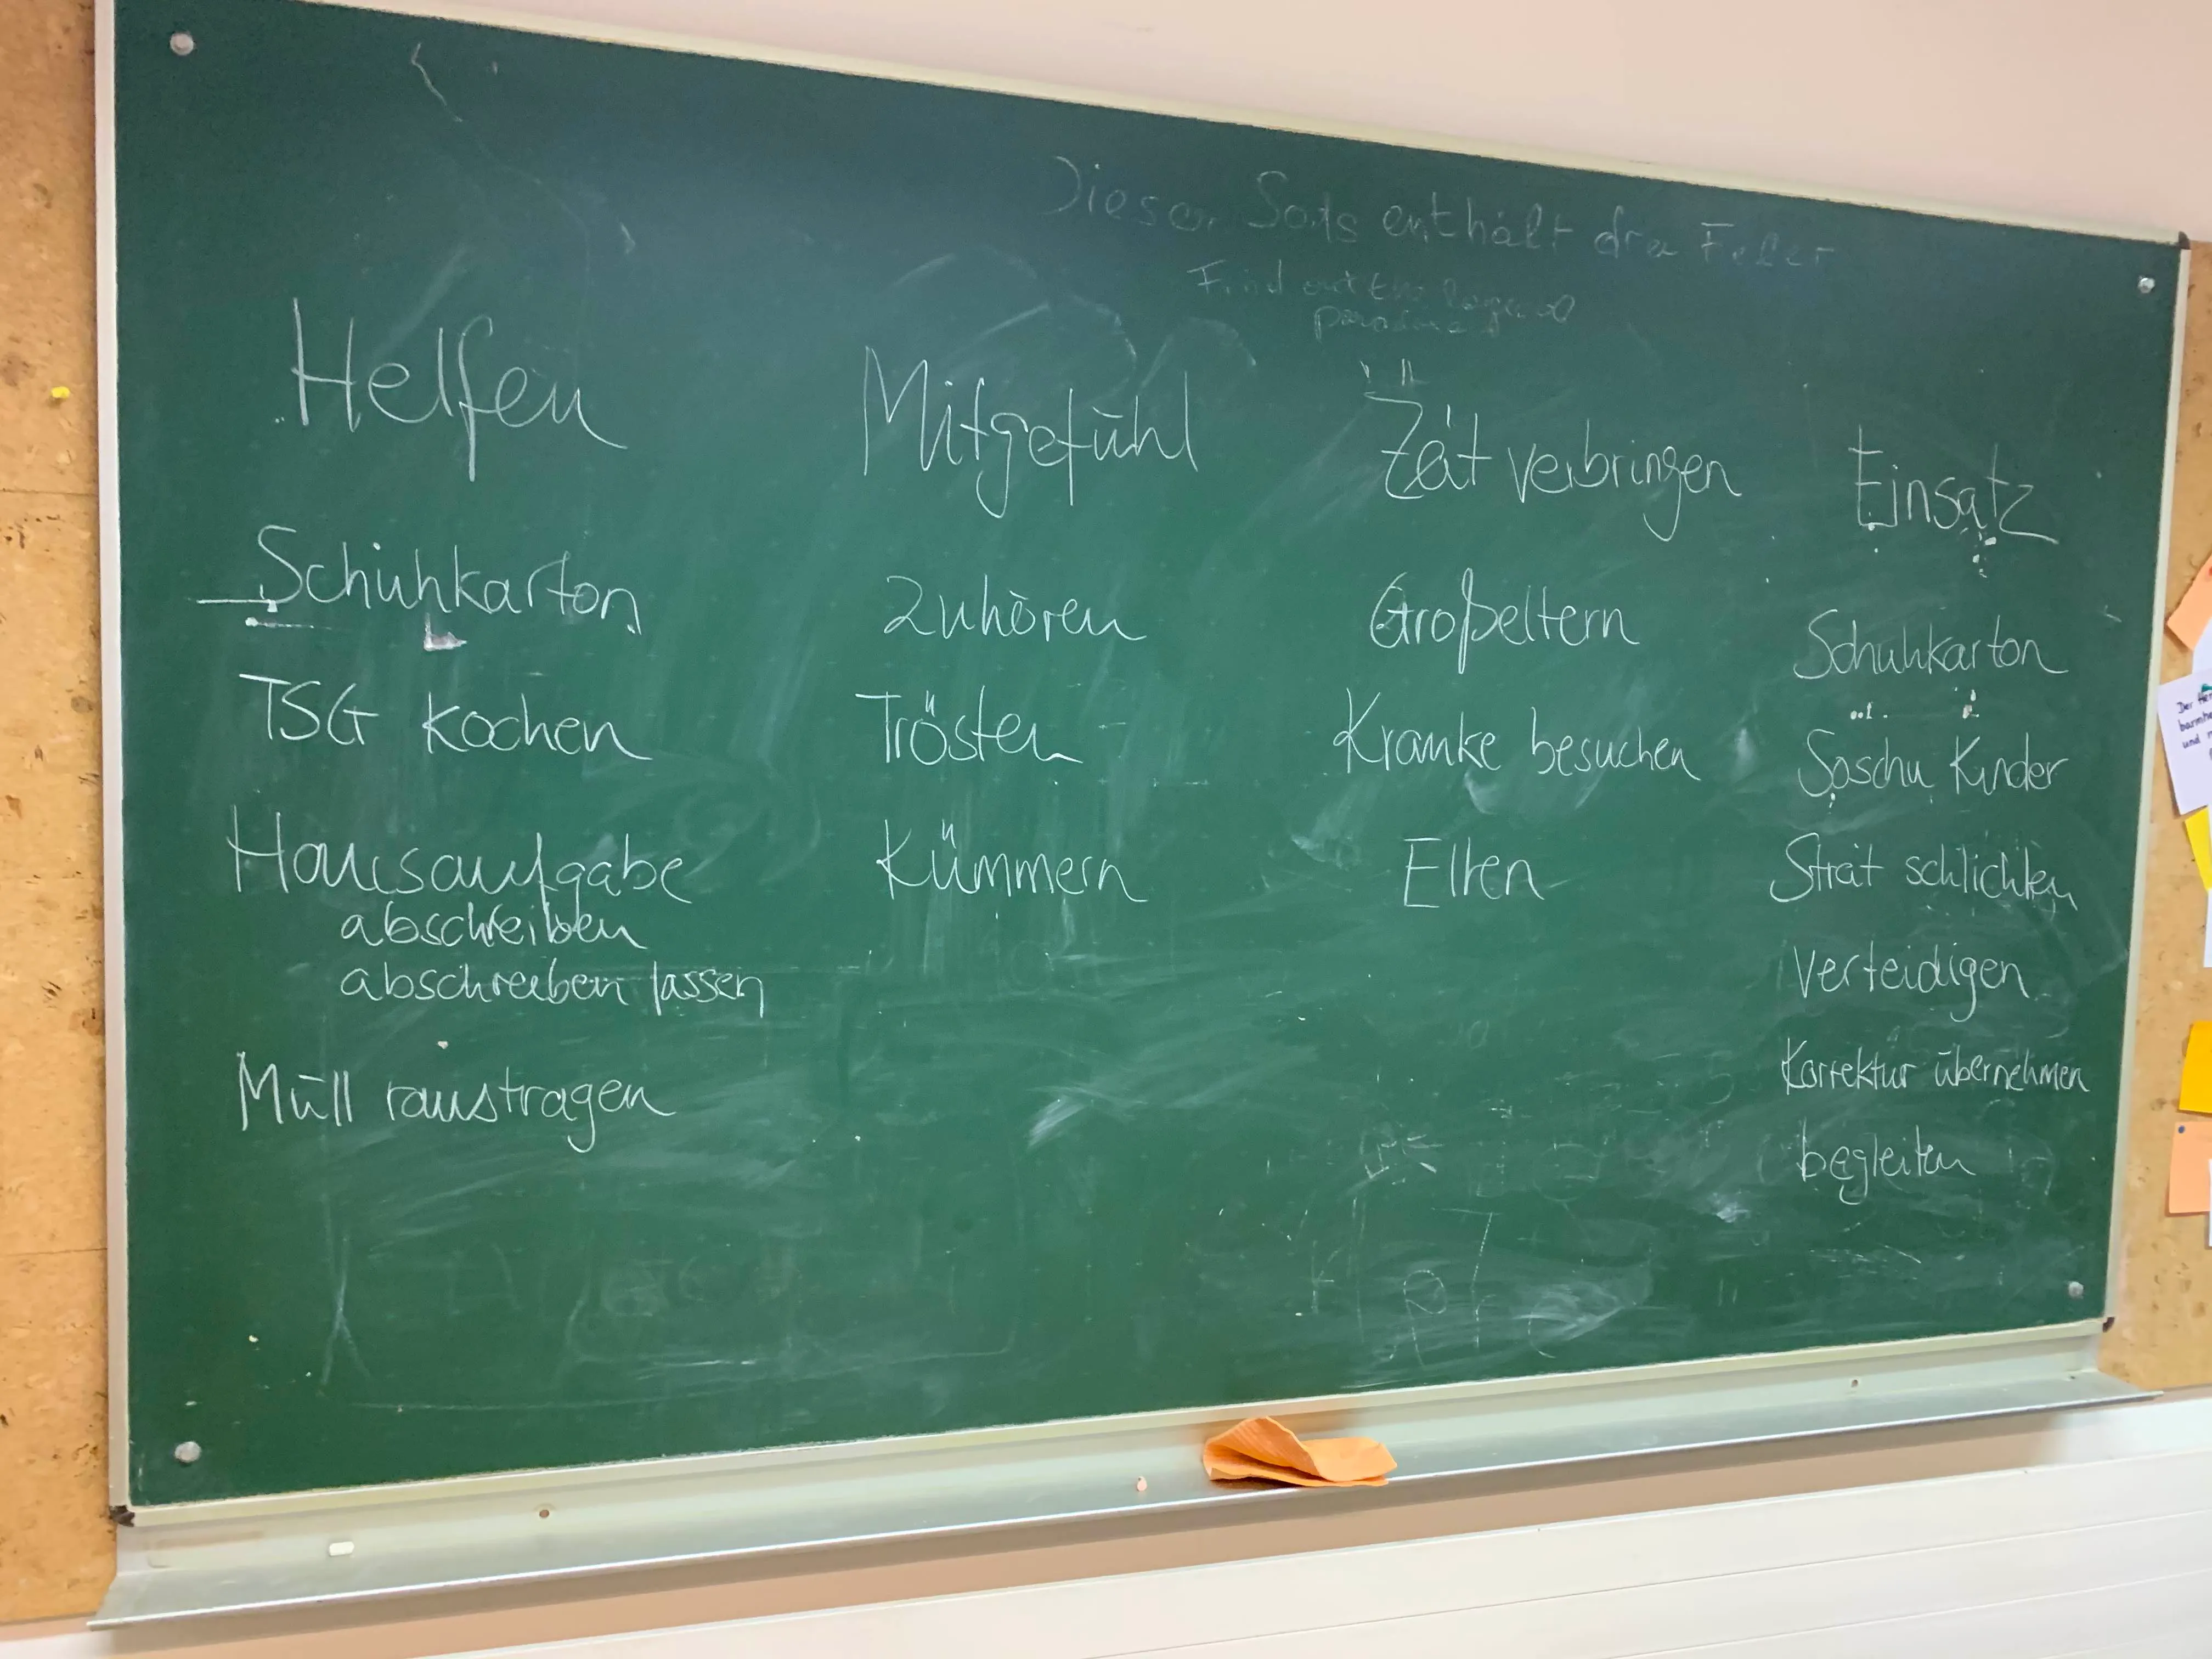 Dieser Sats enthält drei Feler
Find out the logical
paradox
Helfen
Schuhkarton
TSG kochen
Hausaufgabe
abschreiben
abschreiben lassen
Müll raustragen
Mitgefühl
Zuhören
Trösten
Kümmern
Zeit verbringen
Großeltern
Kranke besuchen
Eltern
Einsatz
Schuhkarton
Soschu Kinder
Streit schlichten
Verteidigen
Korrektur übernehmen
begleiten
Der
und